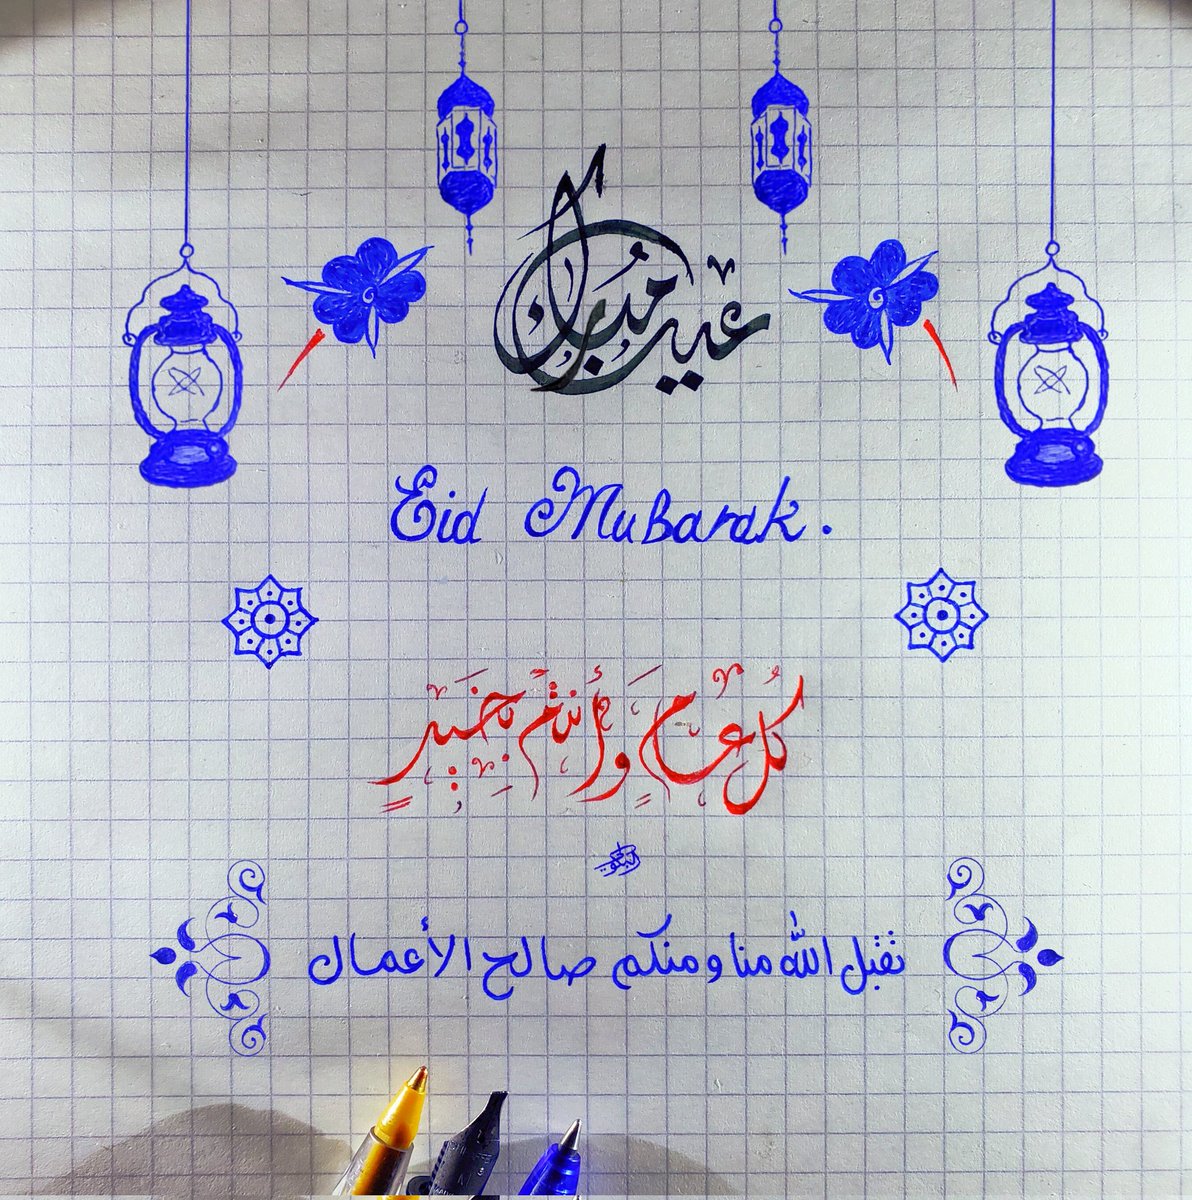 عيد مبارك
Eid Mubarak.
كُل عَام وَأَنتُم بِخَيرٍ
تقبل الله منا ومنكم صالح الأعمال